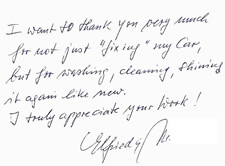 I want to thank you very much
for not just "fixing" my car,
but for washing, cleaning, shining
it again like new.
I truly appreciate your work!
Elfriede M.